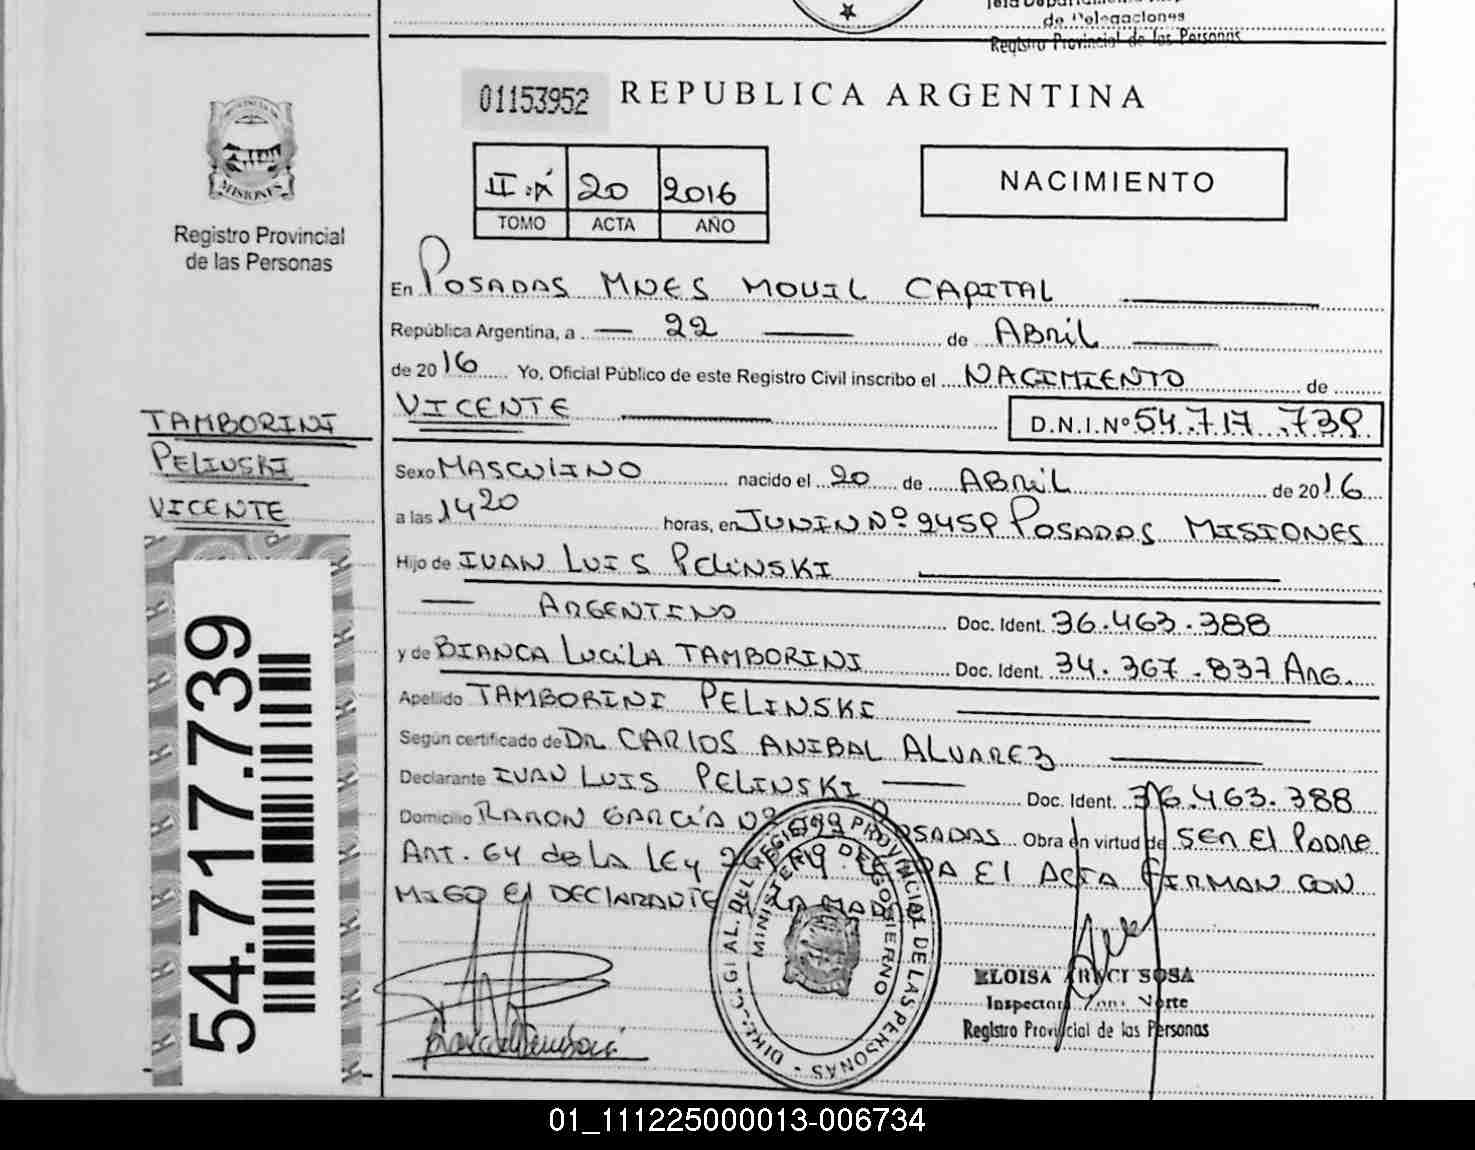 de Delegaciones
Registro Provincial de las Personas
01153952 REPUBLICA ARGENTINA
MISIONES
Registro Provincial
de las Personas
20 2016
TOMO ACTA AÑO
NACIMIENTO
En POSADAS MNES MOVIL CAPITAL
República Argentina, a 22 de ABRIL
de 2016 Yo, Oficial Público de este Registro Civil inscribo el NACIMIENTO de
VICENTE D.N.I.Nº 54.717.739
TAMBORINI
PELINSKI
VICENTE
Sexo MASCULINO nacido el 20 de ABRIL de 2016
a las 14 20 horas, en JUNIN Nº 2459 POSADAS MISIONES
Hijo de IVAN LUIS PELINSKI
ARGENTINO Doc. Ident. 36.463.388
y de BIANCA LUCILA TAMBORINI Doc. Ident. 34.367.837 ARG.
Apellido TAMBORINI PELINSKI
Según certificado de DR CARLOS ANIBAL ALVAREZ
Declarante IVAN LUIS PELINSKI Doc. Ident. 36.463.388
Domicilio RAMON GARCÍA POSADAS Obra en virtud de SER EL PADRE
ART. 64 de LA LEY EL ACTA FIRMAN CON
MIGO El DECLARANTE Y LA MADRE
54.717.739
DIREC. GRAL. DEL REGISTRO PROVINCIAL DE LAS PERSONAS
MINISTERIO DE GOBIERNO
ELOISA ARACI SOSA
Inspectora Zona Norte
Registro Provincial de las Personas
01_111225000013-006734